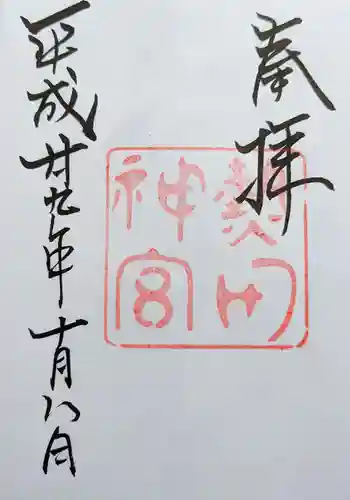 奉拝
熱田
神宮
平成廿九年十月八日